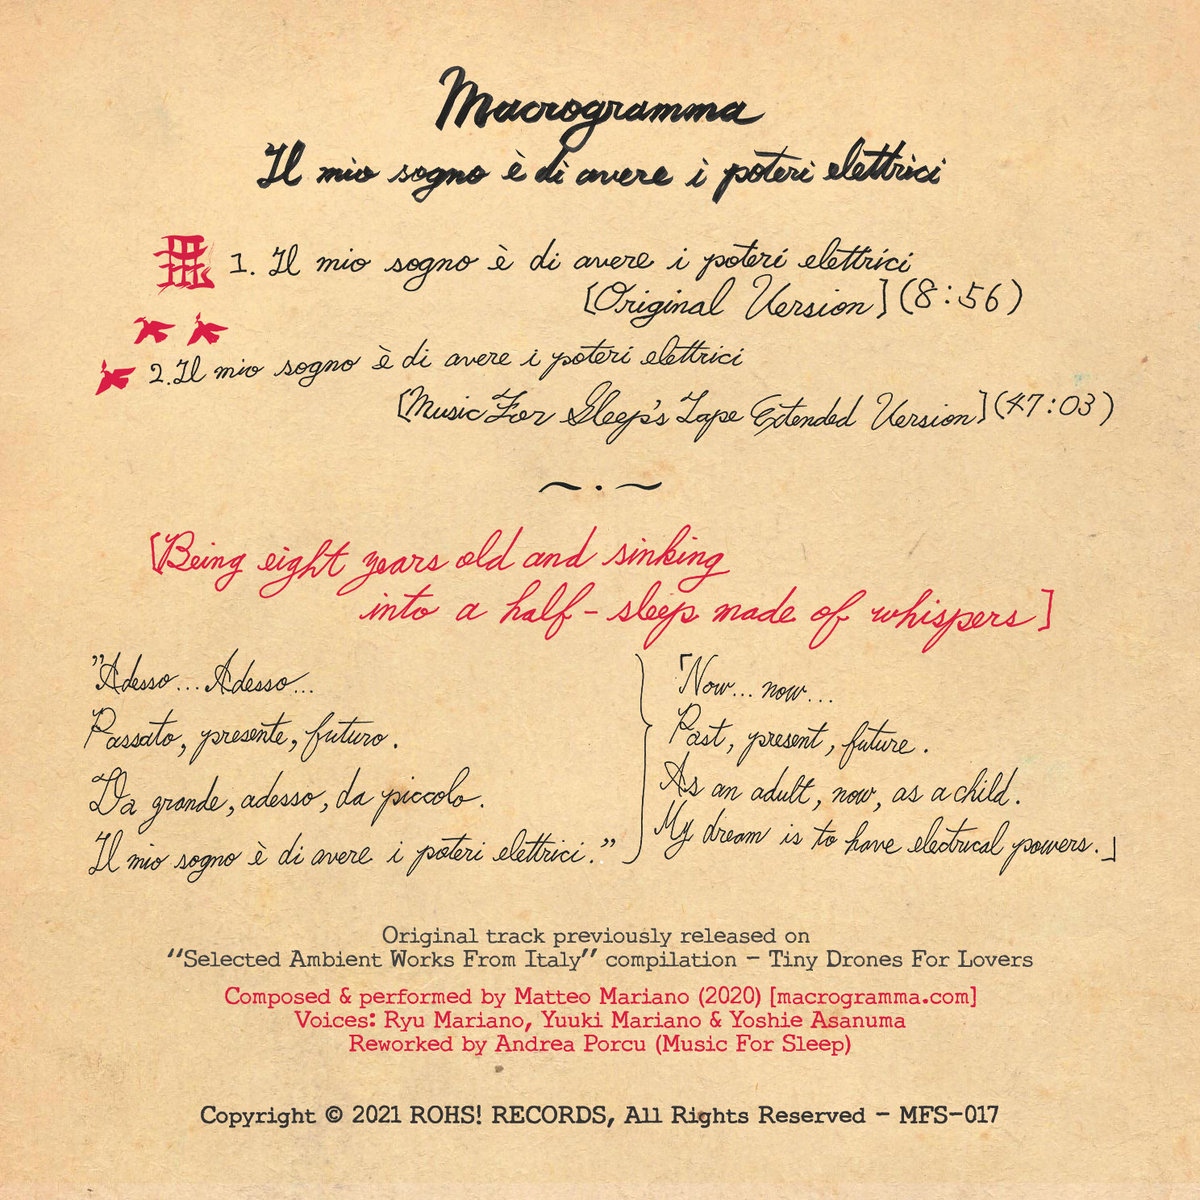 Macrogramma
Il mio sogno è di avere i poteri elettrici
1. Il mio sogno è di avere i poteri elettrici
[Original Version] (8:56)
2. Il mio sogno è di avere i poteri elettrici
[Music For Sleep's Tape Extended Version] (47:03)
[Being eight years old and sinking
into a half-sleep made of whispers]
"Adesso... Adesso...
Passato, presente, futuro.
Da grande, adesso, da piccolo.
Il mio sogno è di avere i poteri elettrici."
「Now... now...
Past, present, future.
As an adult, now, as a child.
My dream is to have electrical powers.」
Original track previously released on
“Selected Ambient Works From Italy” compilation - Tiny Drones For Lovers
Composed & performed by Matteo Mariano (2020) [macrogramma.com]
Voices: Ryu Mariano, Yuuki Mariano & Yoshie Asanuma
Reworked by Andrea Porcu (Music For Sleep)
Copyright © 2021 ROHS! RECORDS, All Rights Reserved - MFS-017